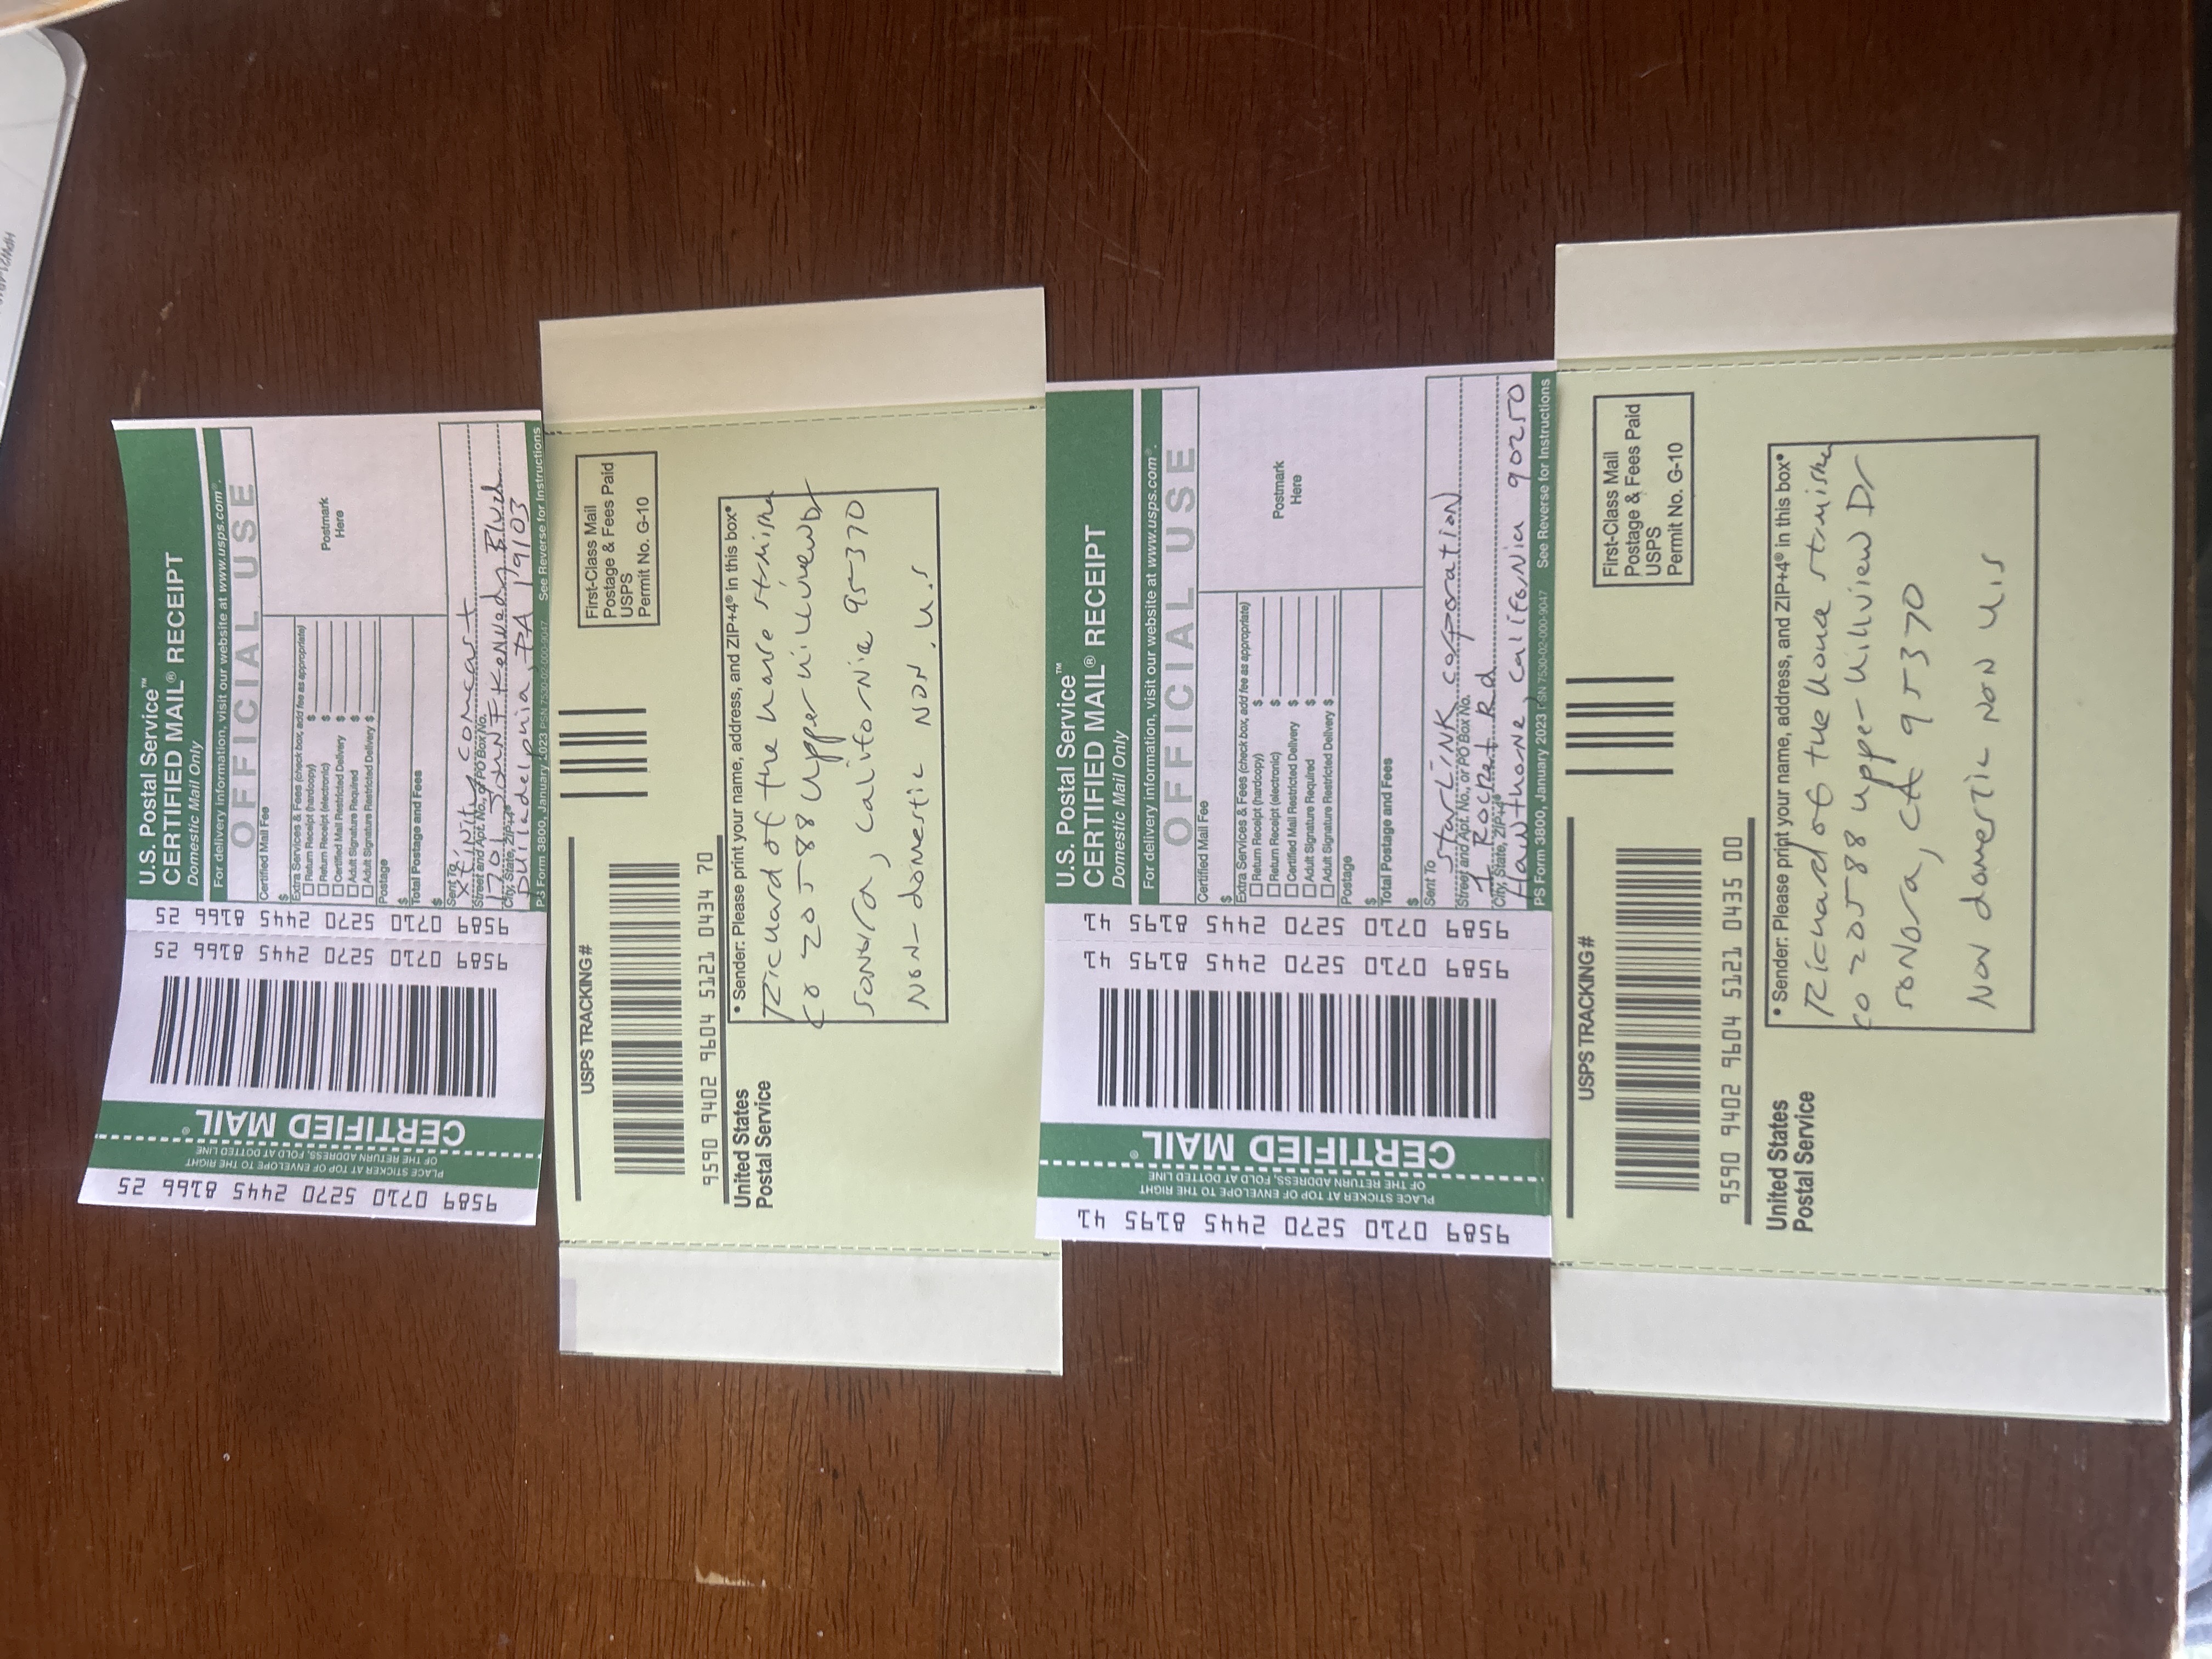 9589 0710 5270 2445 8166 25
PLACE STICKER AT TOP OF ENVELOPE TO THE RIGHT
OF THE RETURN ADDRESS, FOLD AT DOTTED LINE
CERTIFIED MAIL®
9589 0710 5270 2445 8166 25
9589 0710 5270 2445 8166 25
U.S. Postal Service™
CERTIFIED MAIL® RECEIPT
Domestic Mail Only
For delivery information, visit our website at www.usps.com®.
OFFICIAL USE
Certified Mail Fee
$
Extra Services & Fees (check box, add fee as appropriate)
Return Receipt (hardcopy) $
Return Receipt (electronic) $
Certified Mail Restricted Delivery $
Adult Signature Required $
Adult Signature Restricted Delivery $
Postmark
Here
Postage
$
Total Postage and Fees
$
Sent To
Xfinity Comcast
Street and Apt. No., or PO Box No.
1701 John F Kennedy Blvd
City, State, ZIP+4®
Philadelphia, PA 19103
PS Form 3800, January 2023 PSN 7530-02-000-9047 See Reverse for Instructions
USPS TRACKING #
First-Class Mail
Postage & Fees Paid
USPS
Permit No. G-10
9590 9402 9604 5121 0434 70
United States
Postal Service
• Sender: Please print your name, address, and ZIP+4® in this box•
Richard of the house
co 20588 Upper Hillview Dr
Sonora, California 95370
NON-domestic NON. U.S
9589 0710 5270 2445 8195 41
PLACE STICKER AT TOP OF ENVELOPE TO THE RIGHT
OF THE RETURN ADDRESS, FOLD AT DOTTED LINE
CERTIFIED MAIL®
9589 0710 5270 2445 8195 41
9589 0710 5270 2445 8195 41
U.S. Postal Service™
CERTIFIED MAIL® RECEIPT
Domestic Mail Only
For delivery information, visit our website at www.usps.com®.
OFFICIAL USE
Certified Mail Fee
$
Extra Services & Fees (check box, add fee as appropriate)
Return Receipt (hardcopy) $
Return Receipt (electronic) $
Certified Mail Restricted Delivery $
Adult Signature Required $
Adult Signature Restricted Delivery $
Postmark
Here
Postage
$
Total Postage and Fees
$
Sent To
StarLINK corporation
Street and Apt. No., or PO Box No.
1 Rocket Rd
City, State, ZIP+4®
Hawthorne, California 90250
PS Form 3800, January 2023 PSN 7530-02-000-9047 See Reverse for Instructions
USPS TRACKING #
First-Class Mail
Postage & Fees Paid
USPS
Permit No. G-10
9590 9402 9604 5121 0435 00
United States
Postal Service
• Sender: Please print your name, address, and ZIP+4® in this box•
Richard of the house
co 20588 Upper Hillview Dr
Sonora, CA 95370
Non domestic NON U.S